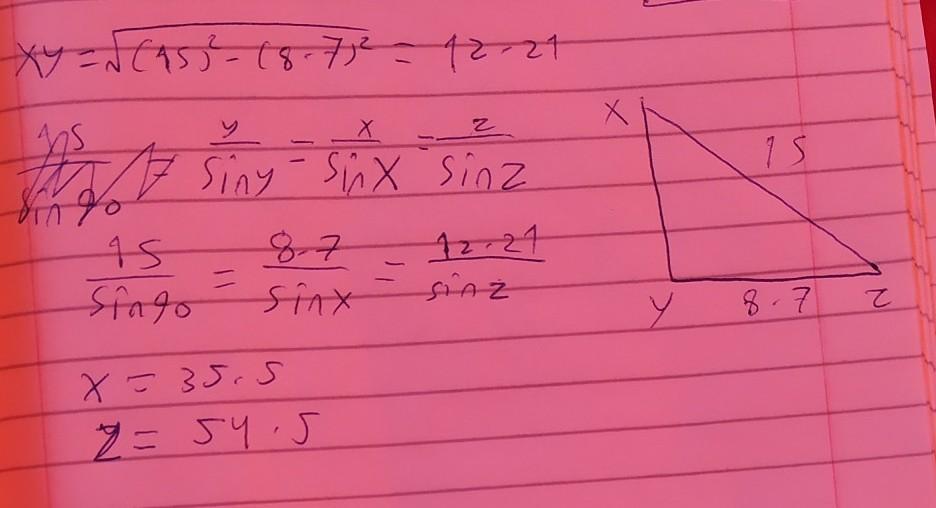 XY = √(15)² - (8.7)² = 12.21
y/siny = x/sinX = z/sinZ
15/sin90 = 8.7/sinx = 12.21/sinz
x = 35.5
z = 54.5
X
15
Y 8.7 Z